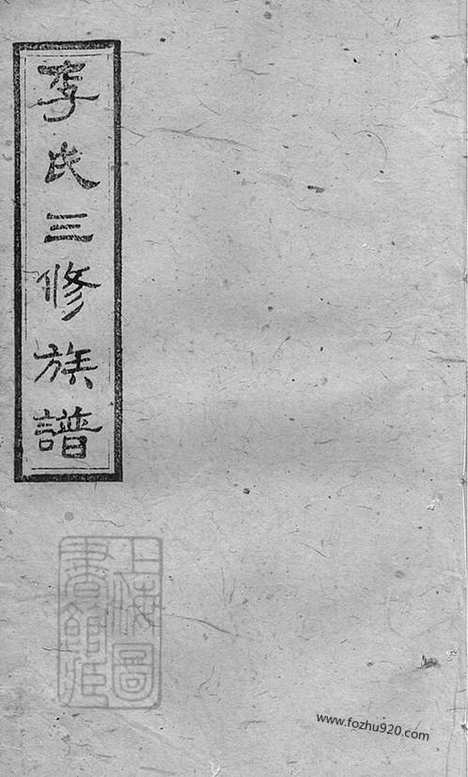 李氏三修族譜
上海圖
書館藏
www.fozhu920.com